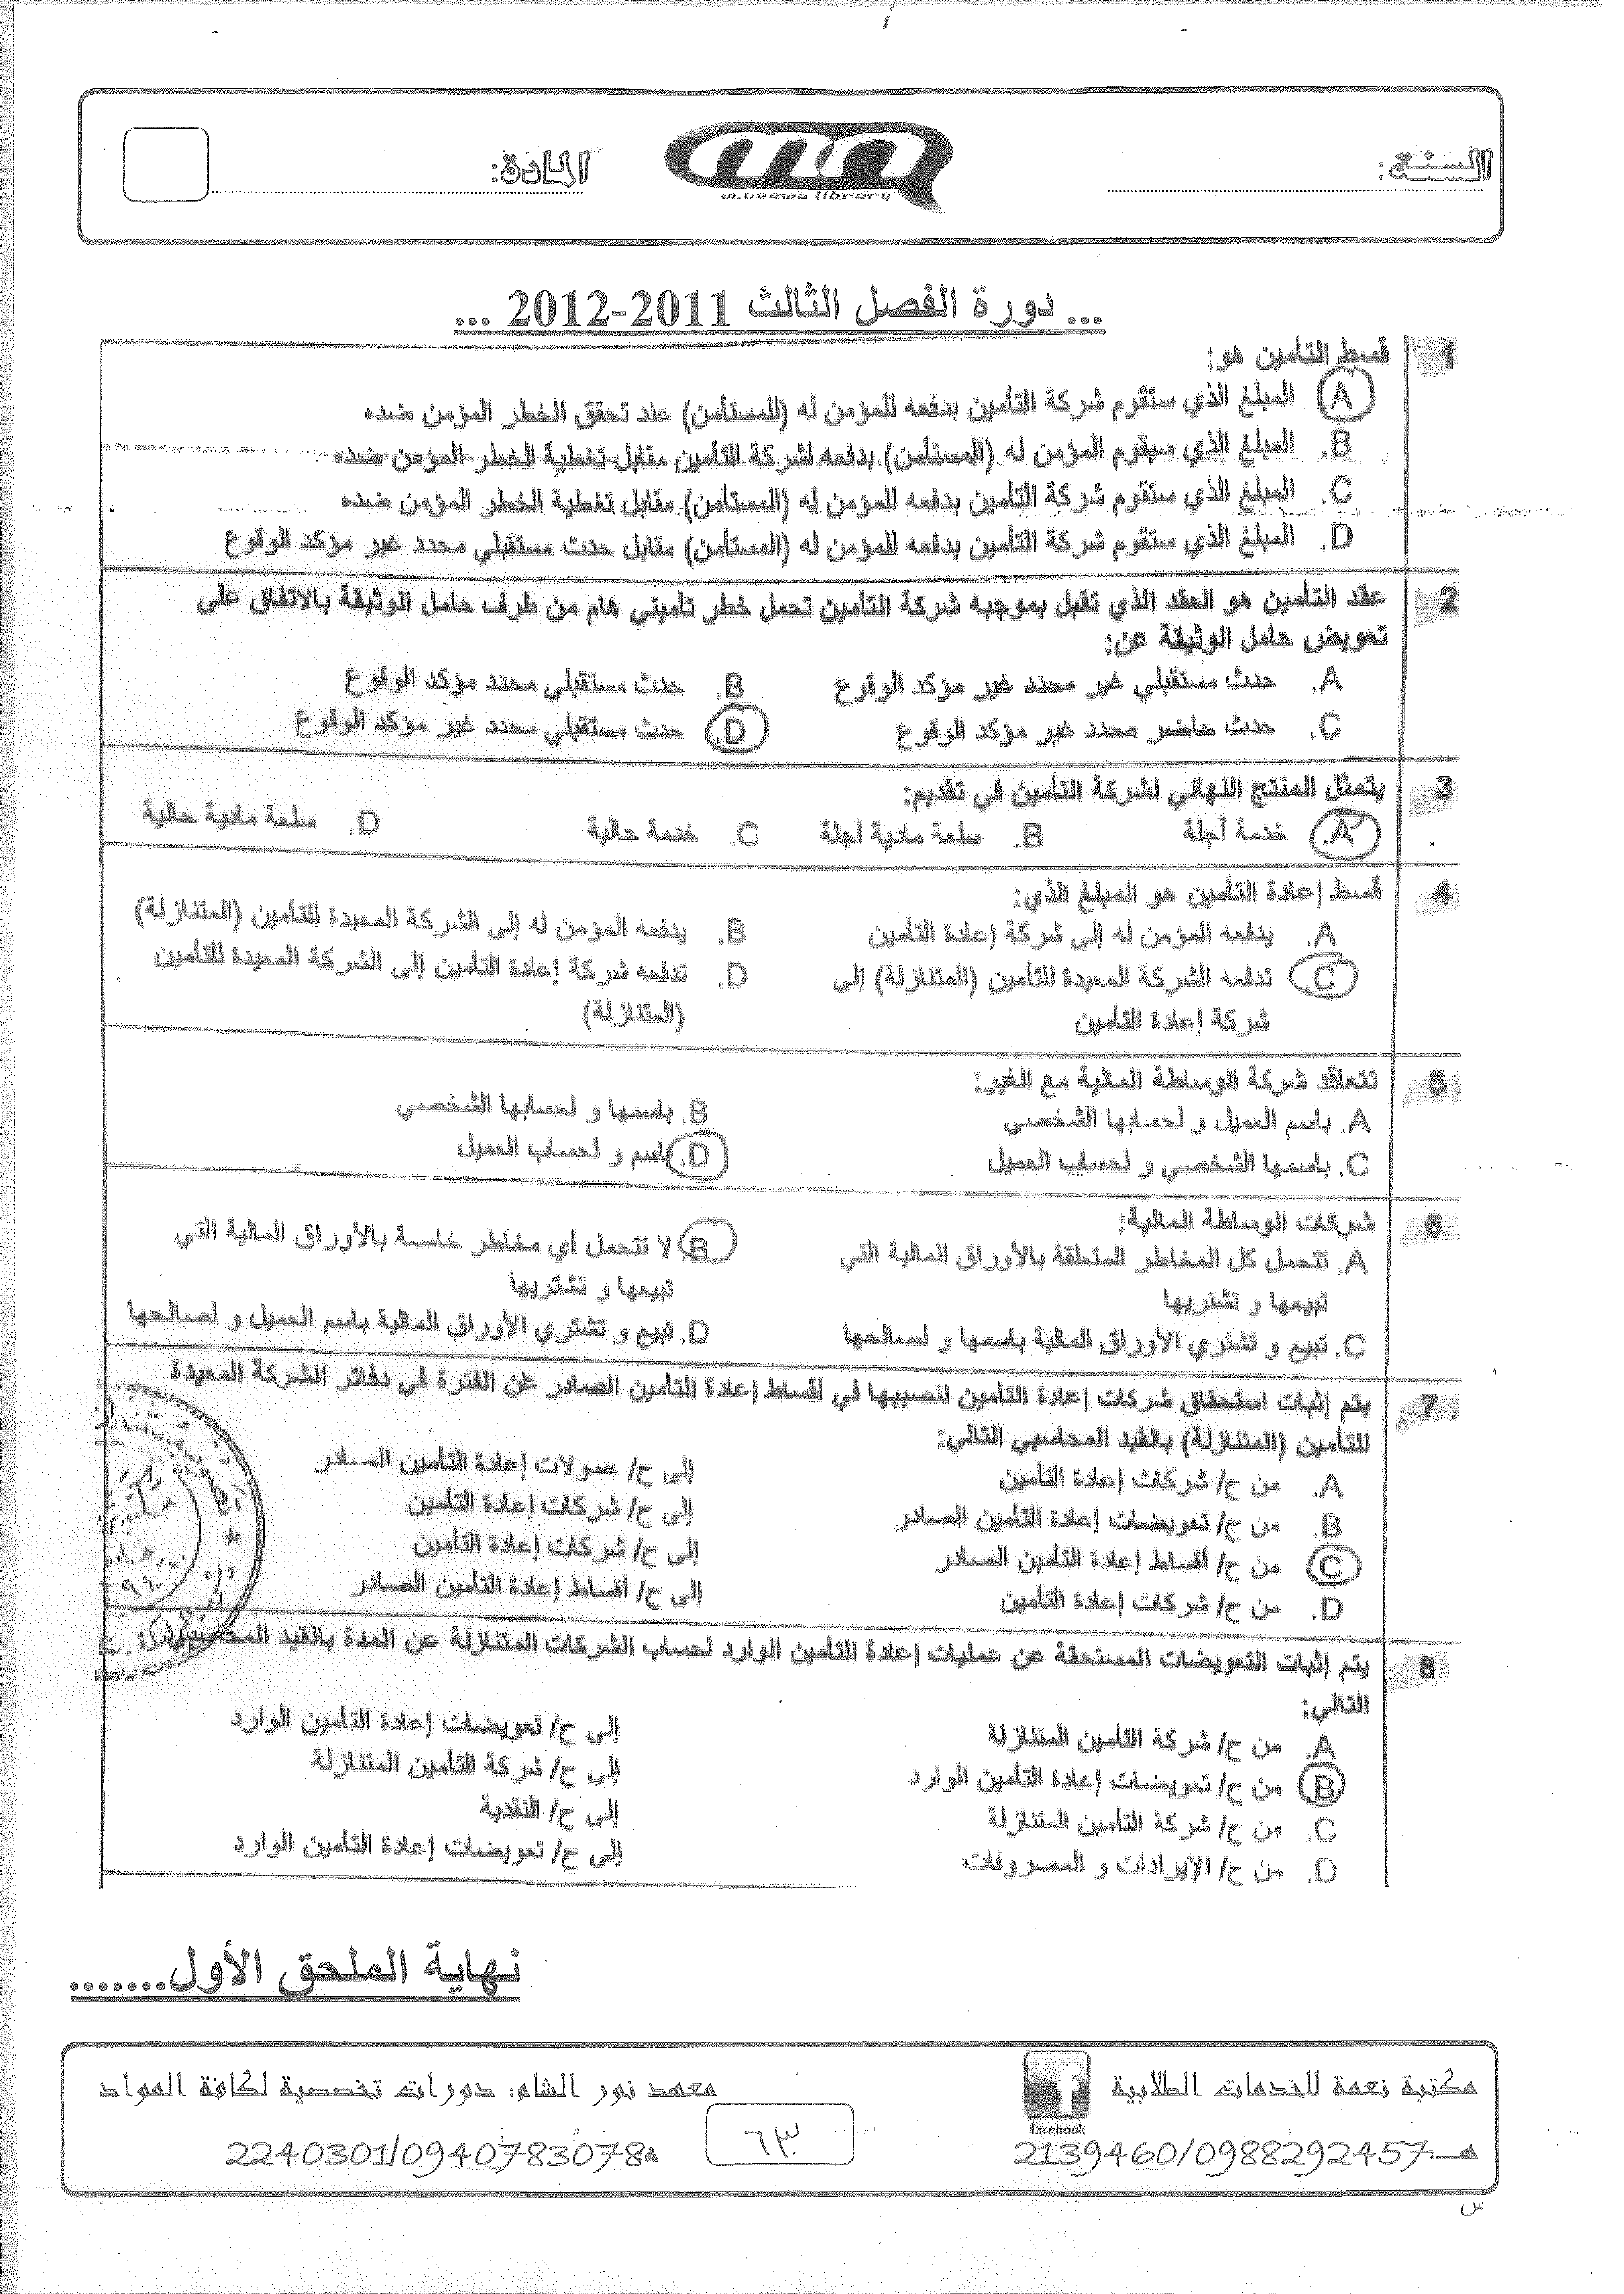 السنة:
m.neama library
المادة:
... دورة الفصل الثالث 2011-2012 ...
1 قسط التأمين هو:
A المبلغ الذي ستقوم شركة التأمين بدفعه للمؤمن له (للمستأمن) عند تحقق الخطر المؤمن ضده
B. المبلغ الذي سيقوم المؤمن له (المستأمن) بدفعه لشركة التأمين مقابل تغطية الخطر المؤمن ضده
C. المبلغ الذي ستقوم شركة التأمين بدفعه للمؤمن له (المستأمن) مقابل تغطية الخطر المؤمن ضده
D. المبلغ الذي ستقوم شركة التأمين بدفعه للمؤمن له (المستأمن) مقابل حدث مستقبلي محدد غير مؤكد الوقوع
2 عقد التأمين هو العقد الذي تقبل بموجبه شركة التأمين تحمل خطر تأميني هام من طرف حامل الوثيقة بالاتفاق على
تعويض حامل الوثيقة عن:
A. حدث مستقبلي غير محدد غير مؤكد الوقوع B. حدث مستقبلي محدد مؤكد الوقوع
C. حدث حاضر محدد غير مؤكد الوقوع D. حدث مستقبلي محدد غير مؤكد الوقوع
3 يتمثل المنتج النهائي لشركة التأمين في تقديم:
A. خدمة آجلة B. سلعة مادية آجلة C. خدمة حالية D. سلعة مادية حالية
4 قسط إعادة التأمين هو المبلغ الذي:
A. يدفعه المؤمن له إلى شركة إعادة التأمين B. يدفعه المؤمن له إلى الشركة المعيدة للتأمين (المتنازلة)
C. تدفعه الشركة المعيدة للتأمين (المتنازلة) إلى D. تدفعه شركة إعادة التأمين إلى الشركة المعيدة للتأمين
شركة إعادة التأمين (المتنازلة)
5 تتعاقد شركة الوساطة المالية مع الغير:
A. باسم العميل و لحسابها الشخصي B. باسمها و لحسابها الشخصي
C. باسمها الشخصي و لحساب العميل D. باسم و لحساب العميل
6 شركات الوساطة المالية:
A. تتحمل كل المخاطر المتعلقة بالأوراق المالية التي B. لا تتحمل أي مخاطر خاصة بالأوراق المالية التي
تبيعها و تشتريها تبيعها و تشتريها
C. تبيع و تشتري الأوراق المالية باسمها و لصالحها D. تبيع و تشتري الأوراق المالية باسم العميل و لصالحها
7 يتم إثبات استحقاق شركات إعادة التأمين لنصيبها في أقساط إعادة التأمين الصادر عن الفترة في دفاتر الشركة المعيدة
للتأمين (المتنازلة) بالقيد المحاسبي التالي:
A. من ح/ شركات إعادة التأمين إلى ح/ عمولات إعادة التأمين الصادر
B. من ح/ تعويضات إعادة التأمين الصادر إلى ح/ شركات إعادة التأمين
C من ح/ أقساط إعادة التأمين الصادر إلى ح/ شركات إعادة التأمين
D. من ح/ شركات إعادة التأمين إلى ح/ أقساط إعادة التأمين الصادر
8 يتم إثبات التعويضات المستحقة عن عمليات إعادة التأمين الوارد لحساب الشركات المتنازلة عن المدة بالقيد المحاسبي
التالي:
A. من ح/ شركة التأمين المتنازلة إلى ح/ تعويضات إعادة التأمين الوارد
B من ح/ تعويضات إعادة التأمين الوارد إلى ح/ شركة التأمين المتنازلة
C. من ح/ شركة التأمين المتنازلة إلى ح/ النقدية
D. من ح/ الإيرادات و المصروفات إلى ح/ تعويضات إعادة التأمين الوارد
نهاية الملحق الأول.......
مكتبة نعمة للخدمات الطلابية
facebook
هـ2139460/0988292457
٦٣
معهد نور الشام: دورات تخصصية لكافة المواد
هـ2240301/0940783078
س